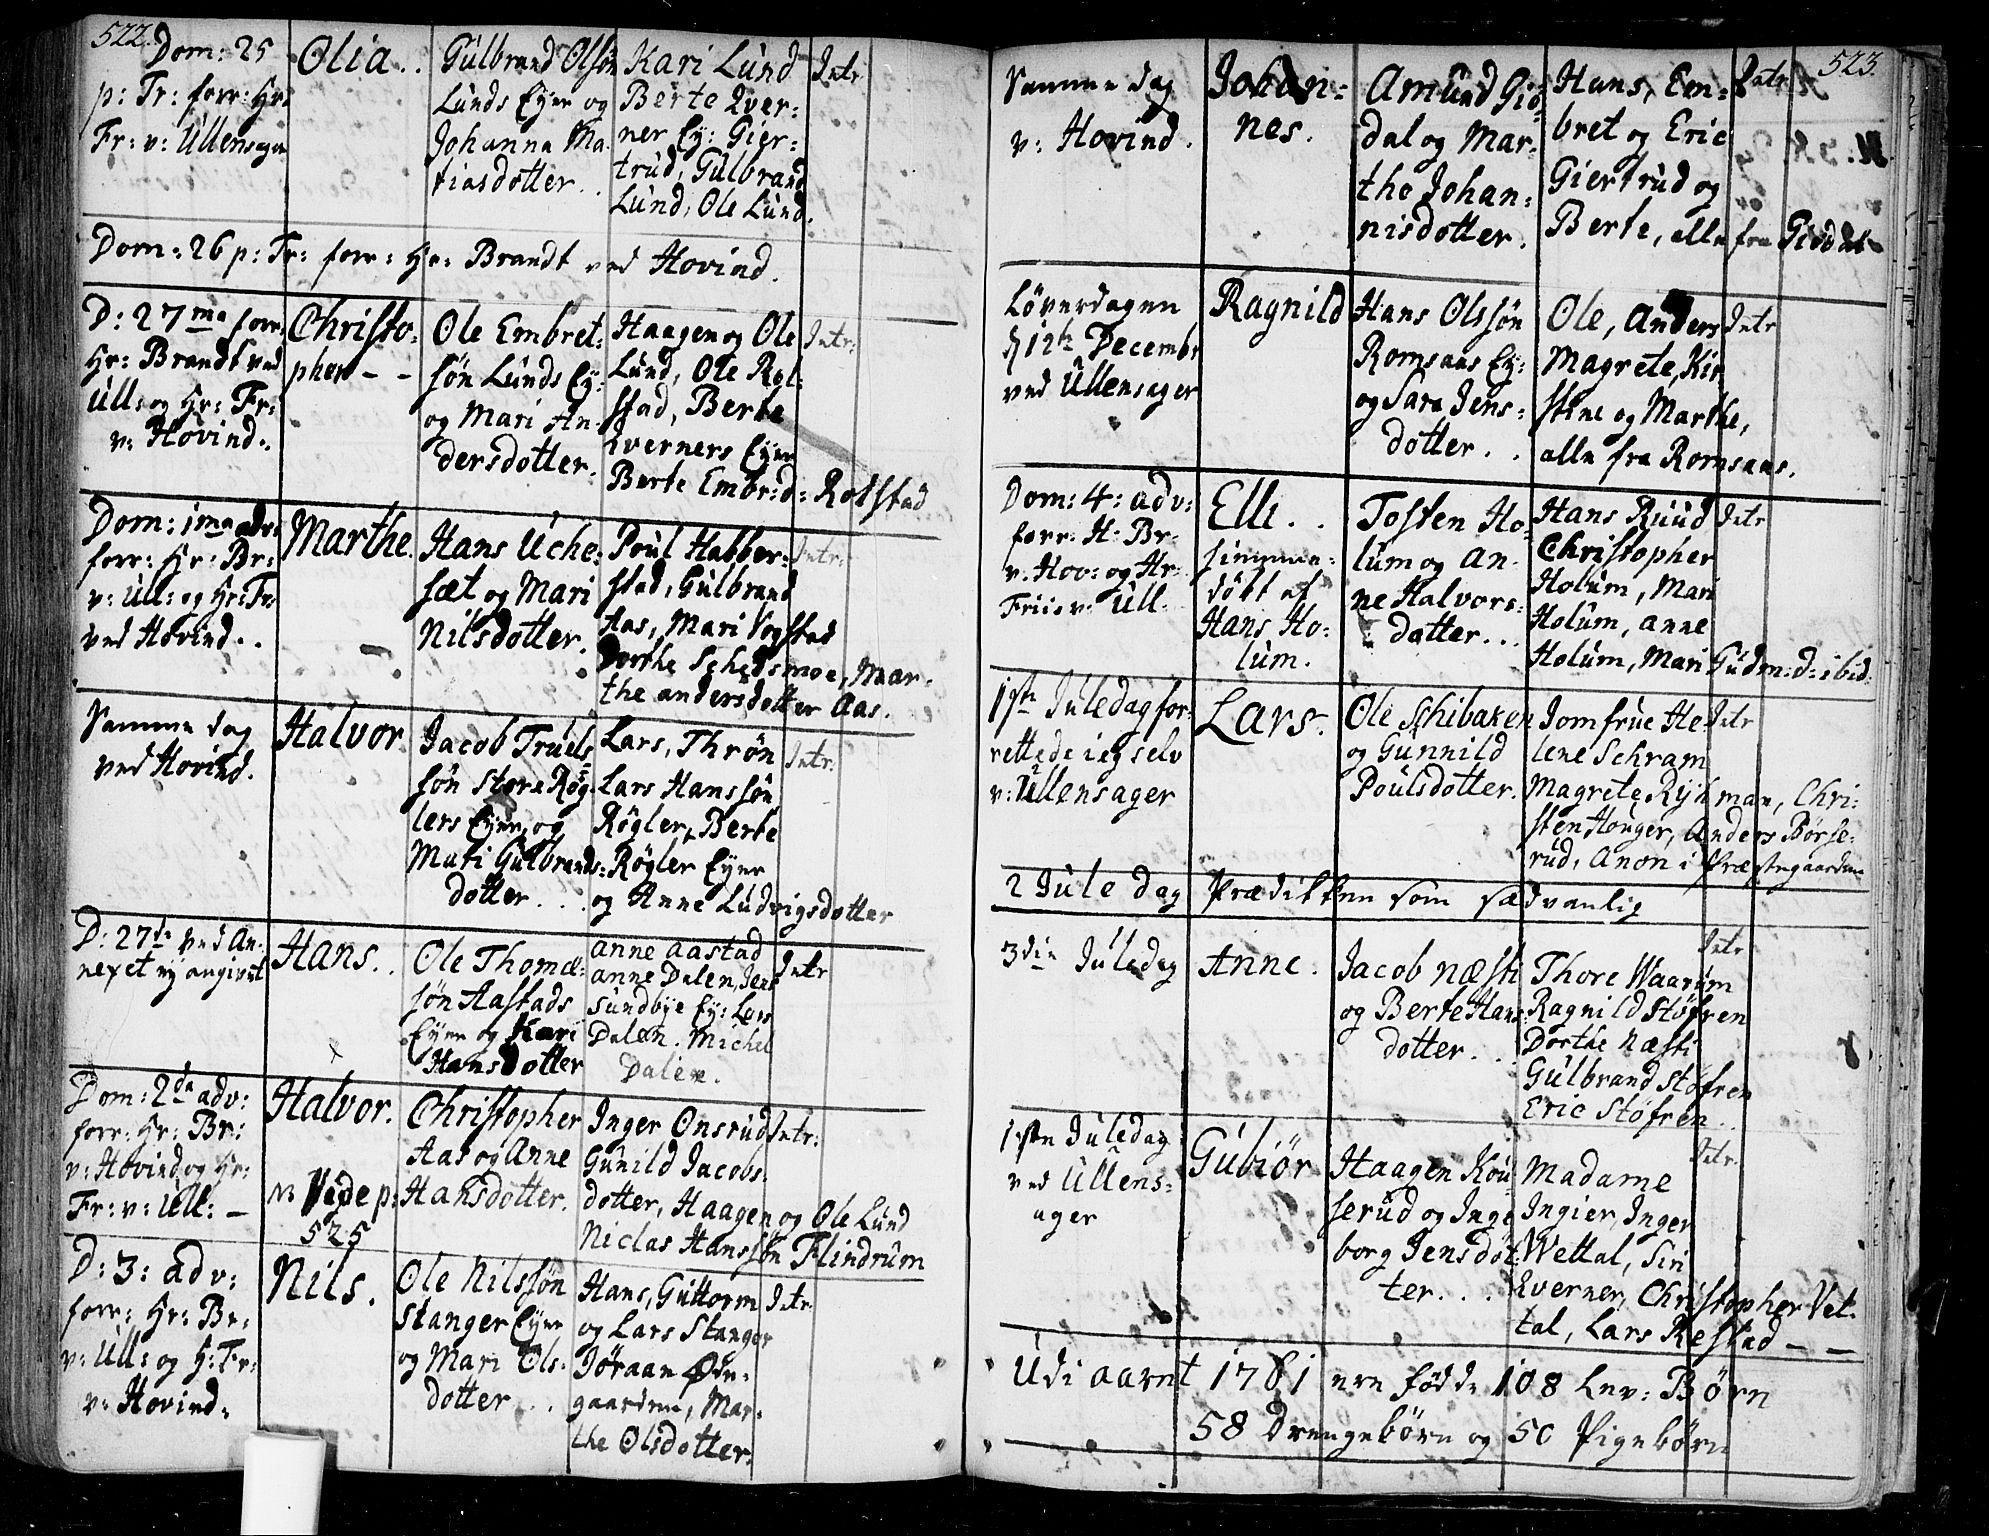 522.
Dom: 25
p: Tr: forr: Hr:
Fr: v: Ullensager
Olia..
Gulbrand Olsøn
Lunds Eyer og
Johanna Ma-
tiasdotter..
Kari Lund
Berte Qver-
ner Ey: Gier-
trud, Gulbrand
Lund, Ole Lund.
Intr:
Dom: 26 p: Tr: forr: Hr: Brandt ved Hovind.
D: 27ma forr:
Hr: Brandt ved
Ull: og Hr: Fr:
v: Hovind.
Christo-
pher - -
Ole Embret-
søn Lunds Ey:
og Mari An-
dersdotter.
Haagen og Ole
Lund, Ole Rol-
stad, Berte
Qverners Eyer
Berte Embr: d: Rolstad
Intr:
Dom: 1ma adv:
forr: Hr: Br:
v: Ull: og Hr: Fr:
ved Hovind..
Marthe.
Hans Uche-
sæt og Mari
Nilsdotter.
Poul Habber-
stad, Gulbrand
Aas, Mari Vogstad
Dorthe Schedsmoe, Mar-
the andersdotter Aas.
Intr:
Samme dag
ved Hovind.
Halvor
Jacob Truels
søn Store Røg-
lers Eyer, og
Mari Gulbrands-
dotter....
Lars, Thrøn
Lars Hanssøn
Røgler, Berte
Røgler Eyer
og Anne Ludvigsdotter
Intr:
D: 27de ved An-
nexet ey angivet
Hans..
Ole Thomæ-
søn Aastads
Eyer og Kari
Hansdotter
anne aastad
anne Dalen, Jens
Sundbye Ey: Lars
Dalen. Michel
Dalen.
Intr
Dom: 2da adv:
forr: Hr: Br:
v: Hovind og Hr:
Fr: v: Ull: -
Halvor.
Vide p:
525
Christopher
Aas og Anne
Hansdotter.
Inger Onsrud
Gunild Jacobs-
dotter, Haagen og Ole Lund
Niclas Hanssøn Flindrum
Intr:
D: 3: adv:
forr: Hr: Br:
v: Ull: og H: Fr:
v: Hovind.
Nils.
Ole Nilssøn
Stanger Eyer
og Mari Ols-
dotter...
Hans, Guttorm
og Lars Stanger
Jøraan Øde-
gaarden, Mar-
the Olsdotter.
Intr:
523.
Samme dag
v: Hovind.
Johan-
nes.
Amund Gis
dal og Mar-
the Johan-
nisdotter.
Hans, Em-
bret og Eric
Giertrud og
Berte, alle fra Gisdal
Intr
Løverdagen
d 12te Decembr
ved Ullensager
Ragnild
Hans Olssøn
Romsaas Ey:
og Sara Jens-
dotter..
Ole, Anders
Magrete, Kir
stine og Marthe,
alle fra Romsaas.
Intr
Dom: 4: adv:
forr: H: Br:
v: Hov: og Hr:
Friis v: Ull.
Elli..
hjemme-
døbt af
Hans Ho-
lum.
Tosten Ho-
lum og An-
ne Halvors-
datter...
Hans Ruud
Christopher
Holum, Mari
Holum, anne
Holum, Mari Gudm: d: ibid.
Intr
1ste Juledag for-
rettede ieg selv
v: Ullensager
Lars.
Ole Schibaken
og Gunnild
Poulsdotter.
Jomfrue He-
lene Schram
Magrete Ryhman, Chri-
sten Houger, Anders Børse-
rud, Anon i Præstegaarden
Intr
2 Jule dag Prædikken som sædvanlig
3die Juledag
Anne.
Jacob Næsti
og Berte Hans
dotter..
Thore Waarum
Ragnild Støfren
Dorthe Næsti
Gulbrand Støfren
Eric Støfren..
Intr
1ste Juledag
ved Ullens-
ager
Gubiør
Haagen Kou-
serud og Inge
borg Jensdot
ter....
Madame
Ingier, Inger
Wettal, Siri
Qverner, Christopher Vet-
tal, Lars Restad - -
Intr.
Udi aaret 1781 ere fødde 108 Lev: Børn
58 Drengebørn og 50 Pigebørn